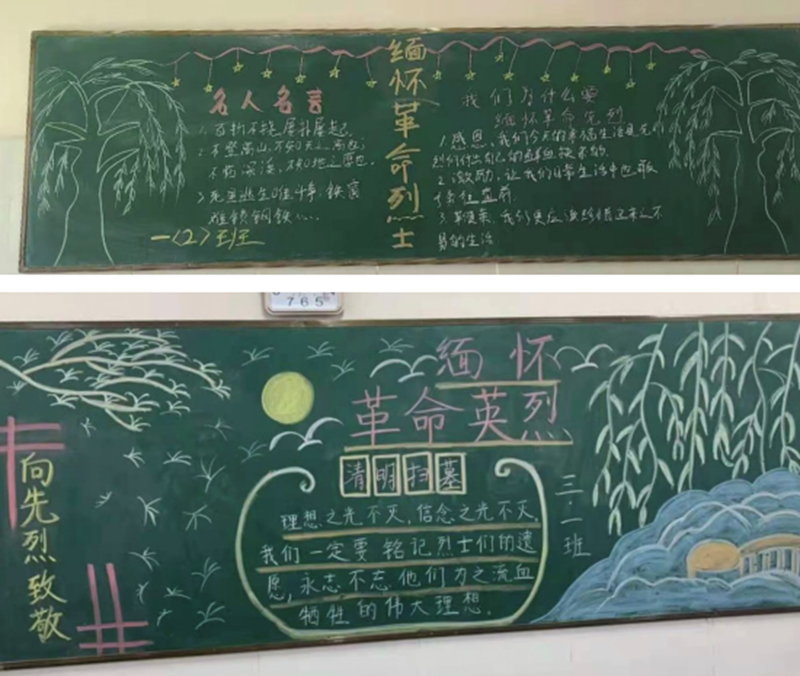 缅怀革命烈士
名人名言
1. 百折不挠,屡扑屡起。
2. 不登高山,不知天之高也;
不临深溪,不知地之厚也。
一〈2〉班
我们为什么要
缅怀革命先烈
1. 感恩,我们今天的幸福生活是先
烈们付出自己的鲜血换来的
2. 激励,让我们日常生活中也
易的生活
765
缅怀
革命英烈
清明扫墓
理想之光不灭,信念之光不灭,
我们一定要铭记烈士们的遗
愿,永志不忘他们为之流血
牺牲的伟大理想。
向先烈致敬
三.一班